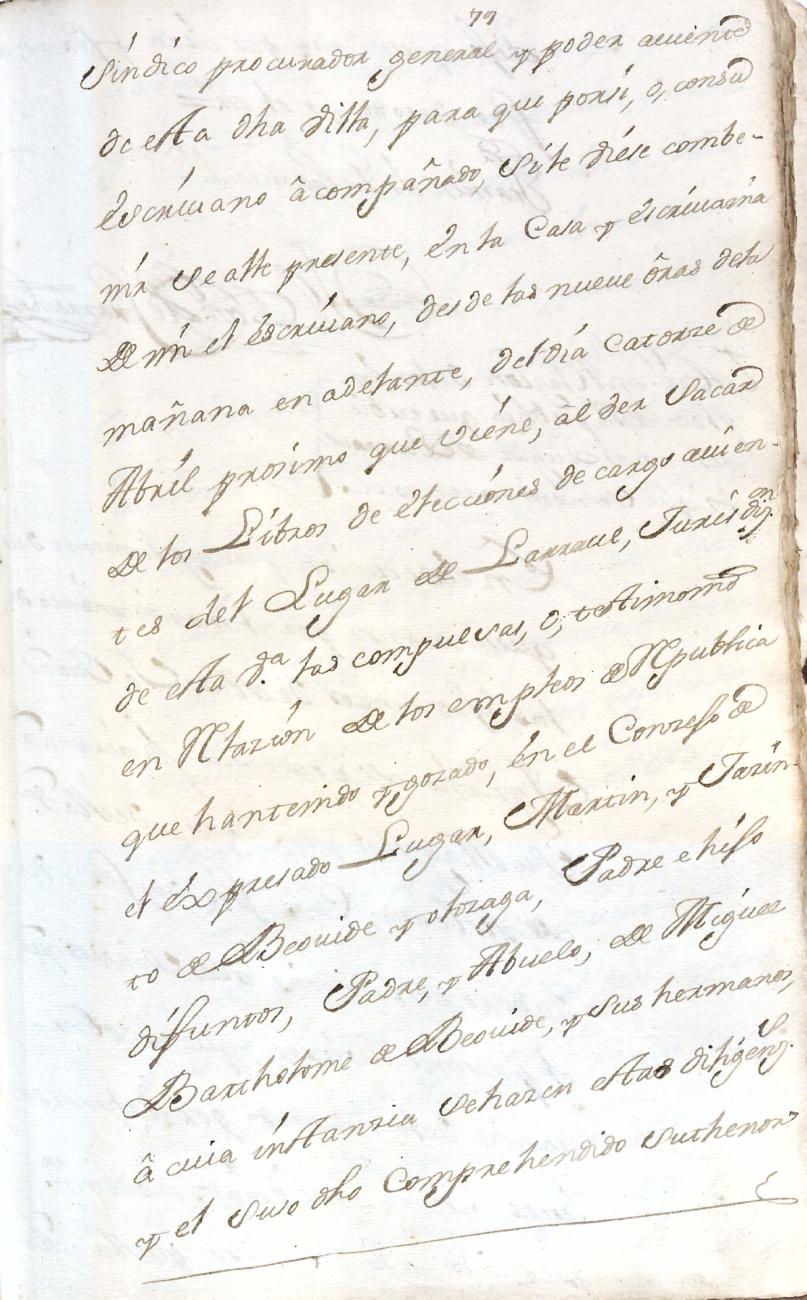 77
Síndíco procurador general y poder aviente
de esta dha Villa, para que porsí, o, consu
éscríuano âcompañado, síle díese combe-
nír se alle presente, en la Casa y éscríuanía
de mí el éscríuano, desde las nueue ôras dela
mañana en adelante, del día catorze de
Abríl prosímo que viéne, âl der sacar
de los Líbros de élecciónes de cargo auien-
tes del Lugar de Larraul, Jurísdi͞on
de esta V.ª las compulsas, o, testimonio
en Relazíón de los empleos de Republica
que hantenido y gozado, én el Conzejo de
el éxpresado Lugar, Martin, y Jazín-
to de Beouide y otozaga, Padre e híjo
dífuntos, Padre, y Abuelo, de Míguel
Bartholome de Beouide, y sus hermanos,
â cuia ínstanzia sehazen estas dílígens.
y el suso dho Comprehendido suthenor